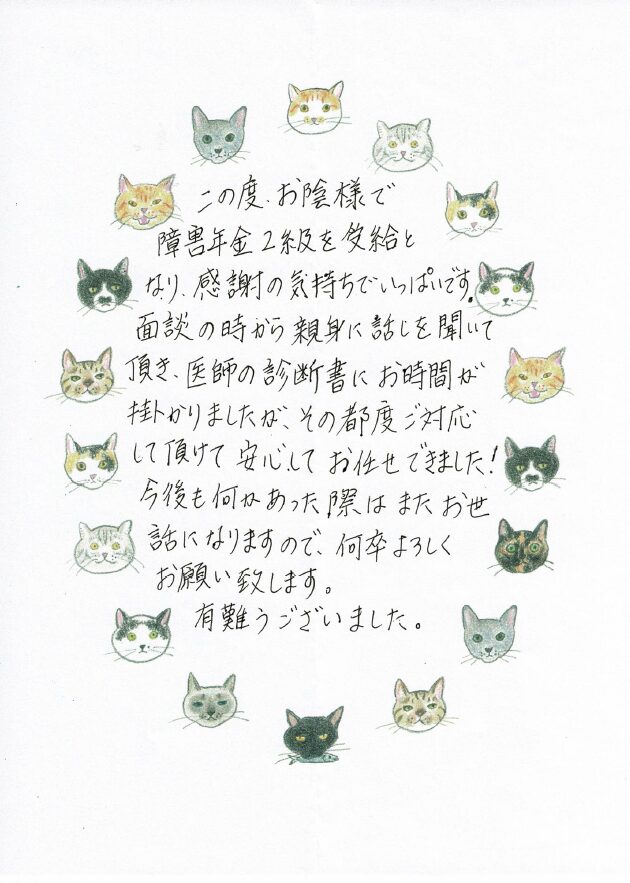 この度、お陰様で
障害年金2級を受給と
なり、感謝の気持ちでいっぱいです。
面談の時から親身に話しを聞いて
頂き、医師の診断書にお時間が
掛かりましたが、その都度ご対応
して頂けて安心してお任せできました!
今後も何かあった際はまたお世
話になりますので、何卒よろしく
お願い致します。
有難うございました。